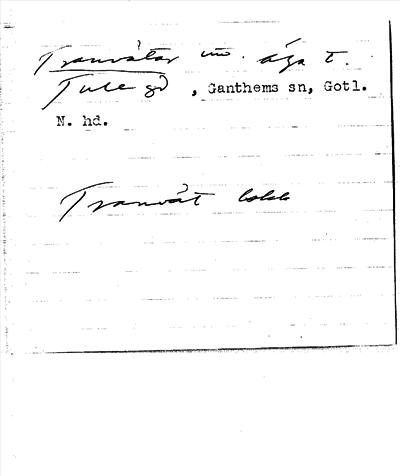 Tranvätar m. äga t.
Tule gd , Ganthems sn, Gotl.
N. hd.
Tranvät